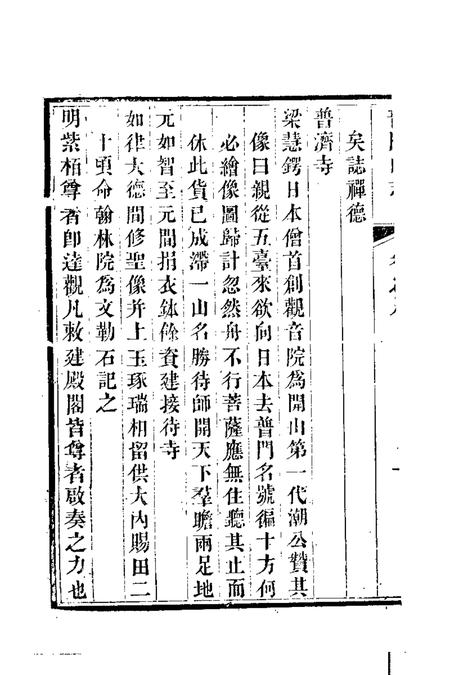 矣誌禪德
普濟寺
梁慧鍔日本僧首創觀音院爲開山第一代潮公贊其
像曰親從五臺來欲向日本去普門名號徧十方何
必繪像圖歸計忽然舟不行菩薩應無住聽其止而
休此貨已成滯一山名勝待師開天下羣瞻兩足地
元如智至元間捐衣鉢餘資建接待寺
如律大德間修聖像幷上玉琢瑞相留供大內賜田二
十頃命翰林院爲文勒石記之
明紫栢尊者卽達觀凡敕建殿閣皆尊者啟奏之力也